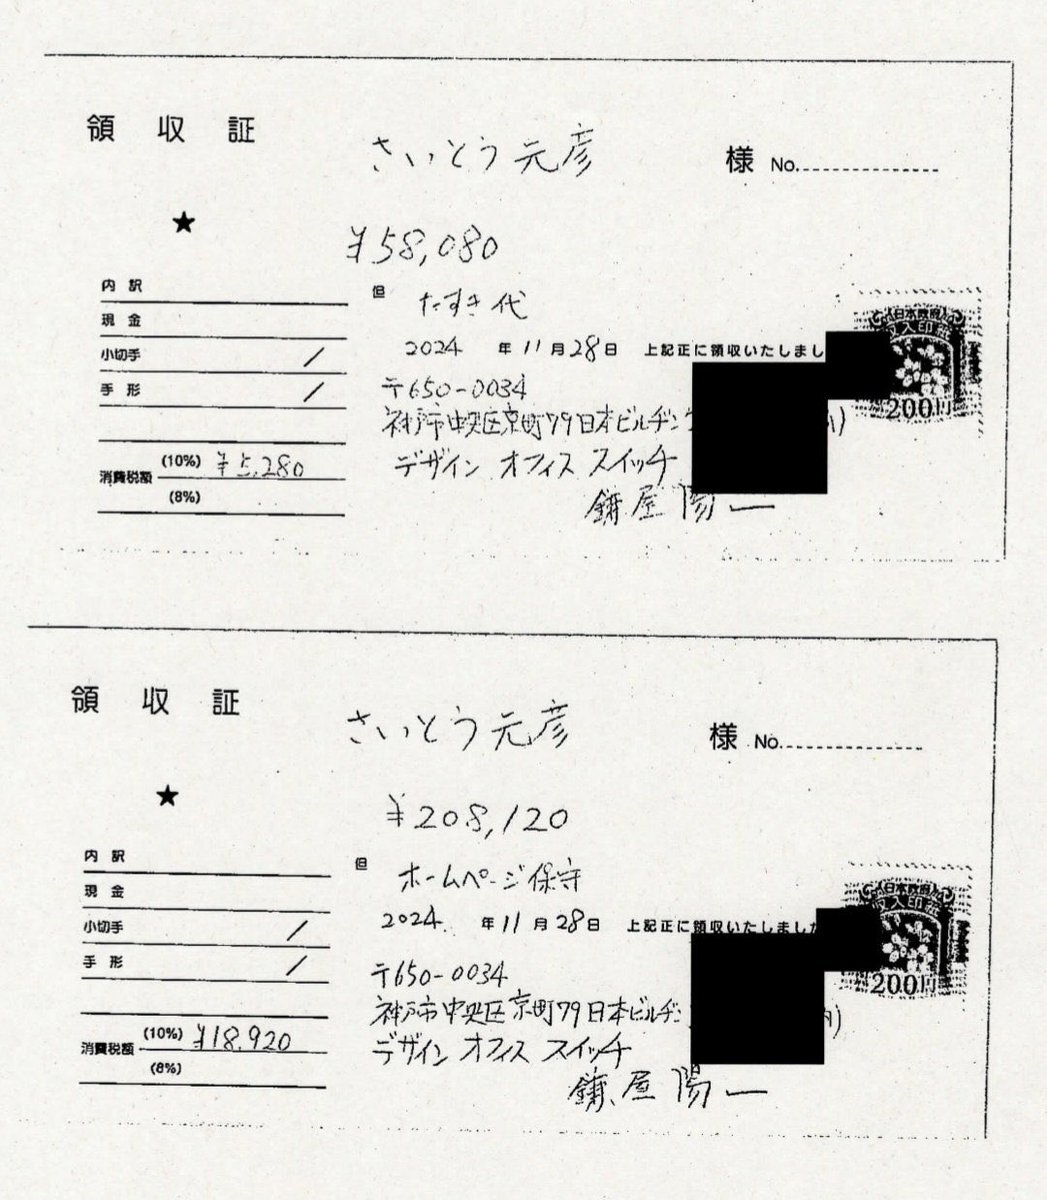 領収証
さいとう元彦 様 No.
★
¥58,080
内訳
但 たすき代
現金
小切手 /
2024年11月28日 上記正に領収いたしまし
手形 /
〒650-0034
神戸市中央区京町79日本ビルヂン
消費税額 (10%) ¥5,280
(8%)
デザイン オフィス スイッチ
鏞屋 陽一
日本政府
収入印紙
200円
領収証
さいとう元彦 様 No.
★
¥208,120
内訳
但 ホームページ保守
現金
小切手 /
2024年11月28日 上記正に領収いたしました
手形 /
〒650-0034
神戸市中央区京町79日本ビルヂ
消費税額 (10%) ¥18,920
(8%)
デザイン オフィス スイッチ
鏞屋 陽一
日本政府
収入印紙
200円